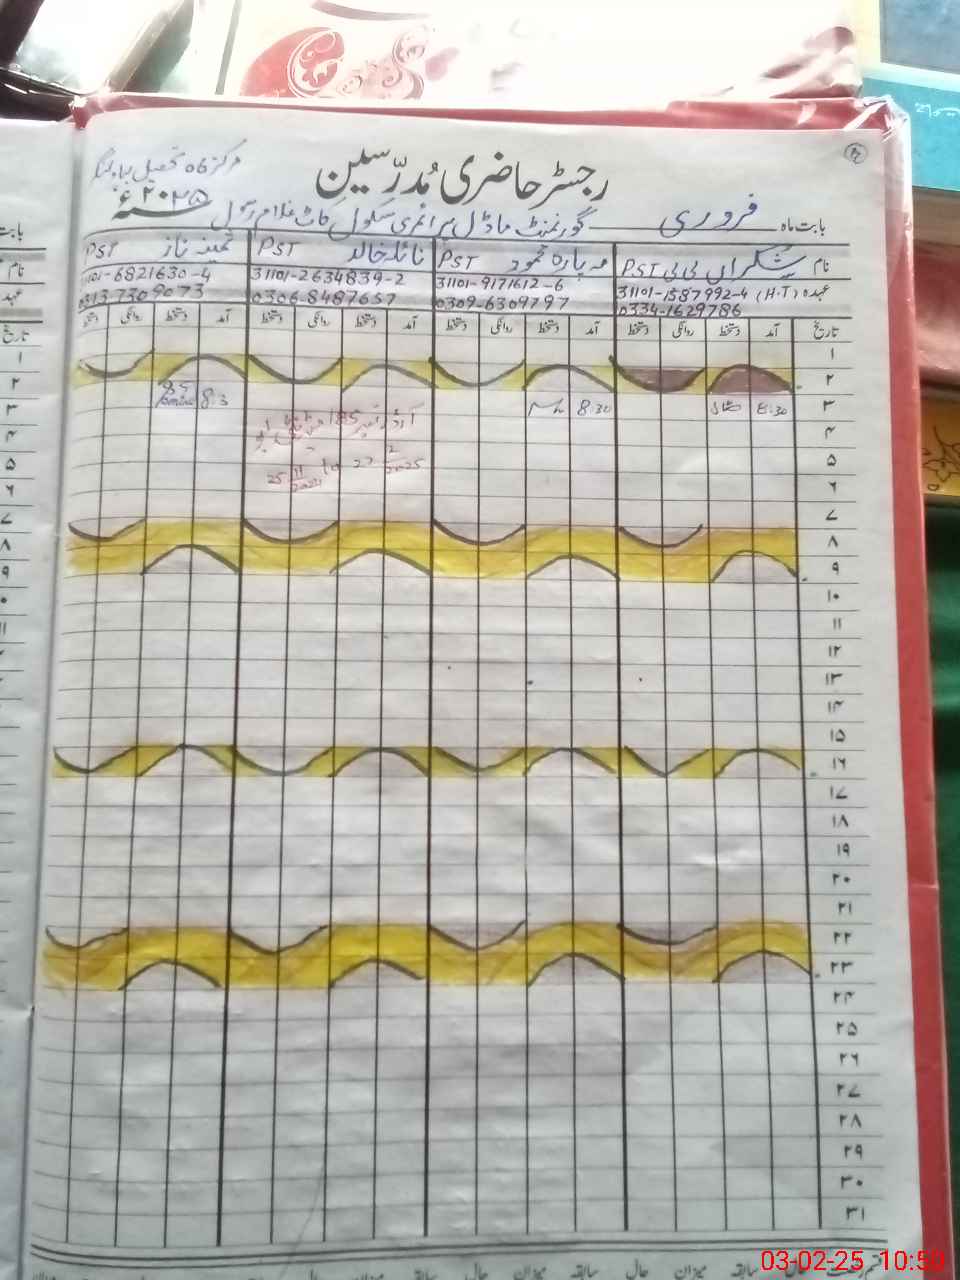 رجسٹر حاضری مُدرّسین
مرکز 06 تحصیل بہاولنگر
بابت ماہ فروری گورنمنٹ ماڈل پرائمری سکول کاٹ غلام رسول ۲۰۲۵ء
نام شکراں بی بی PST مہ پارہ محمود PST نائلہ خالد PST ثمینہ ناز PST
عہدہ (H.T) 31101-1587992-4 31101-9171612-6 31101-2634839-2 31101-6821630-4
0334-1629786 0309-6309797 0306-8487657 0313-7309073
تاریخ آمد دستخط روانگی دستخط آمد دستخط روانگی دستخط آمد دستخط روانگی دستخط آمد دستخط روانگی دستخط
۱
۲
۳ 8:30 8:30 آرڈر نمبر 185 8:3
۴
۵ 25 11 2024 to 22 2 2025
۶
۷
۸
۹
۱۰
۱۱
۱۲
۱۳
۱۴
۱۵
۱۶
۱۷
۱۸
۱۹
۲۰
۲۱
۲۲
۲۳
۲۴
۲۵
۲۶
۲۷
۲۸
۲۹
۳۰
۳۱
حال سابقہ میزان حال سابقہ میزان حال سابقہ میزان
03-02-25 10:50